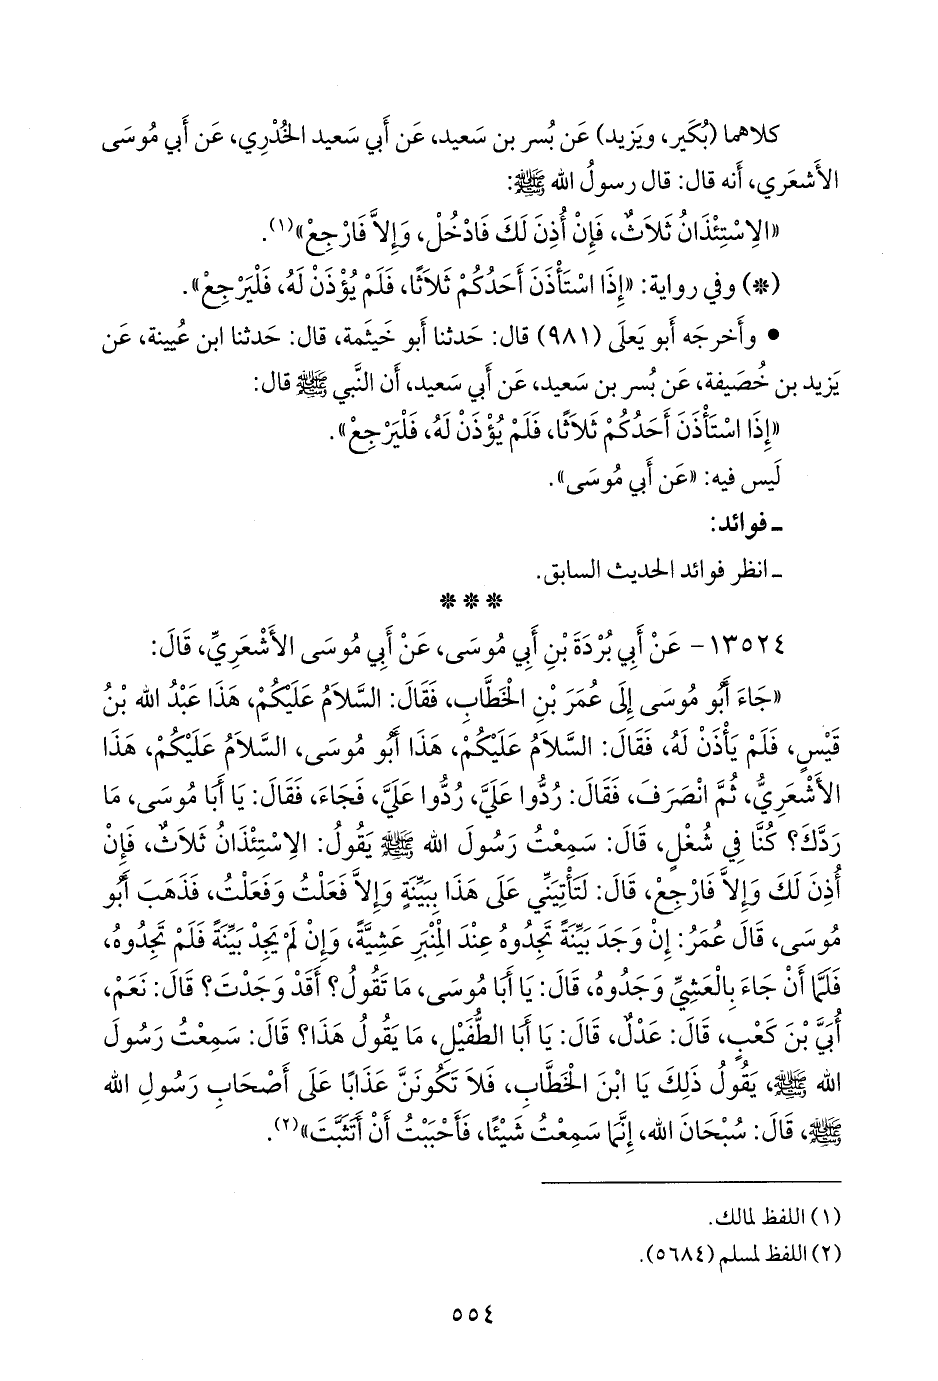 كلاهما (بُكَير، ويَزيد) عَن بُسر بن سَعيد، عَن أَبي سَعيد الخُدْري، عَن أَبي مُوسَى
الأَشعَري، أَنه قال: قال رسولُ الله ﷺ:
«الاِسْتِئْذَانُ ثَلاَثٌ، فَإِنْ أُذِنَ لَكَ فَادْخُلْ، وَإِلاَّ فَارْجِعْ»(١).
(*) وفي رواية: «إِذَا اسْتَأْذَنَ أَحَدُكُمْ ثَلاَثًا، فَلَمْ يُؤْذَنْ لَهُ، فَلْيَرْجِعْ».
• وأَخرجَه أَبو يَعلَى (٩٨١) قال: حَدثنا أَبو خَيثَمة، قال: حَدثنا ابن عُيينة، عَن
يَزيد بن خُصَيفة، عَن بُسر بن سَعيد، عَن أَبي سَعيد، أَن النَّبي ﷺ قال:
«إِذَا اسْتَأْذَنَ أَحَدُكُمْ ثَلاَثًا، فَلَمْ يُؤْذَنْ لَهُ، فَلْيَرْجِعْ».
لَيس فيه: «عَن أَبي مُوسَى».
ـ فوائد:
ـ انظر فوائد الحديث السابق.
* * *
١٣٥٢٤- عَنْ أَبِي بُرْدَةَ بْنِ أَبِي مُوسَى، عَنْ أَبِي مُوسَى الأَشْعَرِيِّ، قَالَ:
«جَاءَ أَبُو مُوسَى إِلَى عُمَرَ بْنِ الْخَطَّابِ، فَقَالَ: السَّلاَمُ عَلَيْكُمْ، هَذَا عَبْدُ الله بْنُ
قَيْسٍ، فَلَمْ يَأْذَنْ لَهُ، فَقَالَ: السَّلاَمُ عَلَيْكُمْ، هَذَا أَبُو مُوسَى، السَّلاَمُ عَلَيْكُمْ، هَذَا
الأَشْعَرِيُّ، ثُمَّ انْصَرَفَ، فَقَالَ: رُدُّوا عَلَيَّ، رُدُّوا عَلَيَّ، فَجَاءَ، فَقَالَ: يَا أَبَا مُوسَى، مَا
رَدَّكَ؟ كُنَّا فِي شُغْلٍ، قَالَ: سَمِعْتُ رَسُولَ الله ﷺ يَقُولُ: الاِسْتِئْذَانُ ثَلاَثٌ، فَإِنْ
أُذِنَ لَكَ وَإِلاَّ فَارْجِعْ، قَالَ: لَتَأْتِيَنِّي عَلَى هَذَا بِبَيِّنَةٍ وَإِلاَّ فَعَلْتُ وَفَعَلْتُ، فَذَهَبَ أَبُو
مُوسَى، قَالَ عُمَرُ: إِنْ وَجَدَ بَيِّنَةً تَجِدُوهُ عِنْدَ الْمِنْبَرِ عَشِيَّةً، وَإِنْ لَمْ يَجِدْ بَيِّنَةً فَلَمْ تَجِدُوهُ،
فَلَمَّا أَنْ جَاءَ بِالْعَشِيِّ وَجَدُوهُ، قَالَ: يَا أَبَا مُوسَى، مَا تَقُولُ؟ أَقَدْ وَجَدْتَ؟ قَالَ: نَعَمْ،
أُبَيَّ بْنَ كَعْبٍ، قَالَ: عَدْلٌ، قَالَ: يَا أَبَا الطُّفَيْلِ، مَا يَقُولُ هَذَا؟ قَالَ: سَمِعْتُ رَسُولَ
الله ﷺ، يَقُولُ ذَلِكَ يَا ابْنَ الْخَطَّابِ، فَلاَ تَكُونَنَّ عَذَابًا عَلَى أَصْحَابِ رَسُولِ الله
ﷺ، قَالَ: سُبْحَانَ الله، إِنَّمَا سَمِعْتُ شَيْئًا، فَأَحْبَبْتُ أَنْ أَتَثَبَّتَ»(٢).
(١) اللفظ لمالك.
(٢) اللفظ لمسلم (٥٦٨٤).
٥٥٤